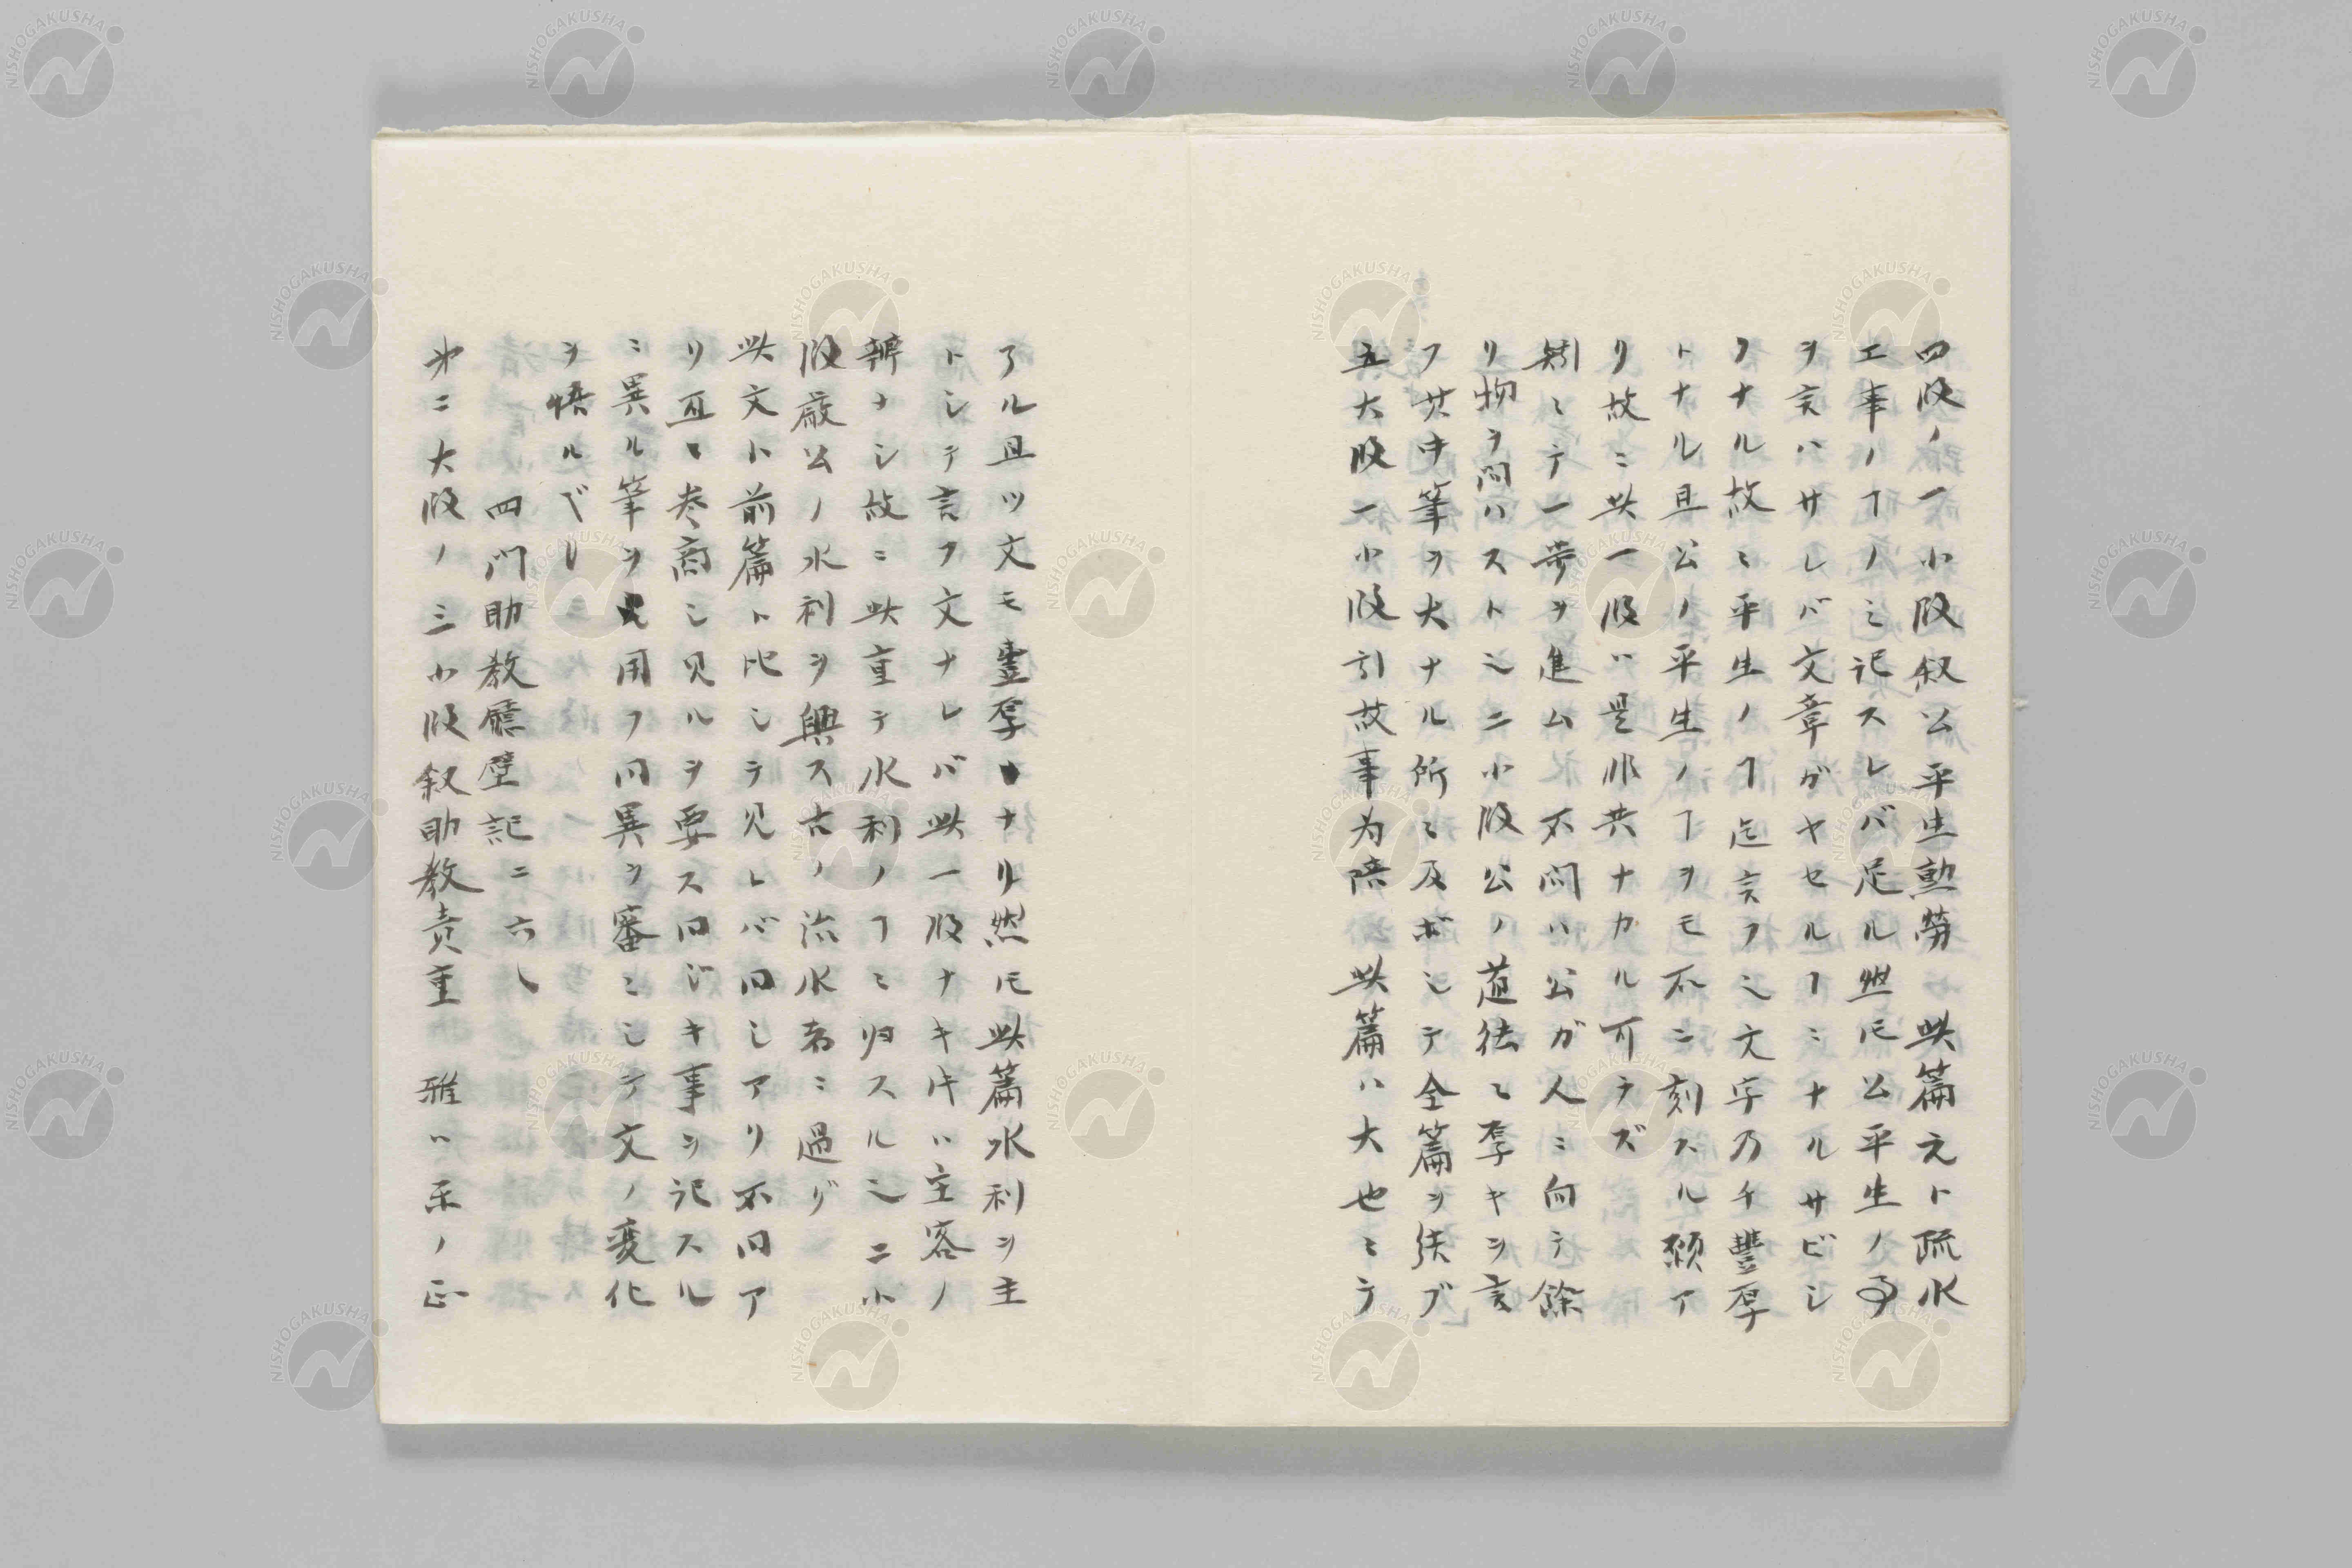 四段ノ一小段叙公平生勲労 此篇元ト疏水
工事ノヿノミ記スレバ足ル然ルニ公平生ノ事
ヲ言ハサレバ文章ガヤセルヿニナルサビシ
クナル故ニ平生ノヿ迄言フ之文字乃チ豊厚
トナル且公ノ平生ノヿヲモ不ニ刻スル願ア
リ故ニ此一段ハ是非共ナカル可ラズ
ニテ一歩ヲ進ム 不問ハ公ガ人ニ向テ餘
リ物ヲ問ハストシニ小段公ノ道徳ニ厚キヲ言
フ其中筆ヲ大ナル所ニ及ボシテ全篇ヲ結ブ
五大段一小段引故事为陪 此篇ハ大也ミテ
アル且ツ文モ豊厚ナリ然ルニ此篇水利ヲ主
トシテ言フ文ナレバ此一段ナキ片ハ主客ノ
辨ナシ故ニ此重テ水利ノヿニ帰スル之二小
段厳公ノ水利ヲ興ス古ノ治水者ニ過グ
此文ト前篇ト比シテ見レバ同シアリ不同ア
リ互ニ参商シ見ルヲ要ス同ジキ事ヲ記スル
ニ異ル筆ヲ用フ同異ヲ審ニシテ文ノ変化
ヲ悟ルベし
四門助教廰壁記二六
第二大段ノ三小段叙助教責重 雅ハ楽ノ正
NISHOGAKUSHA